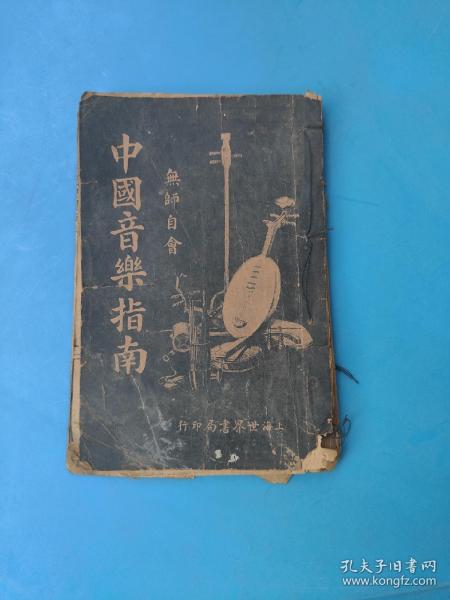 無師自會
中國音樂指南
上海世界書局印行
孔夫子旧书网
www.kongfz.com